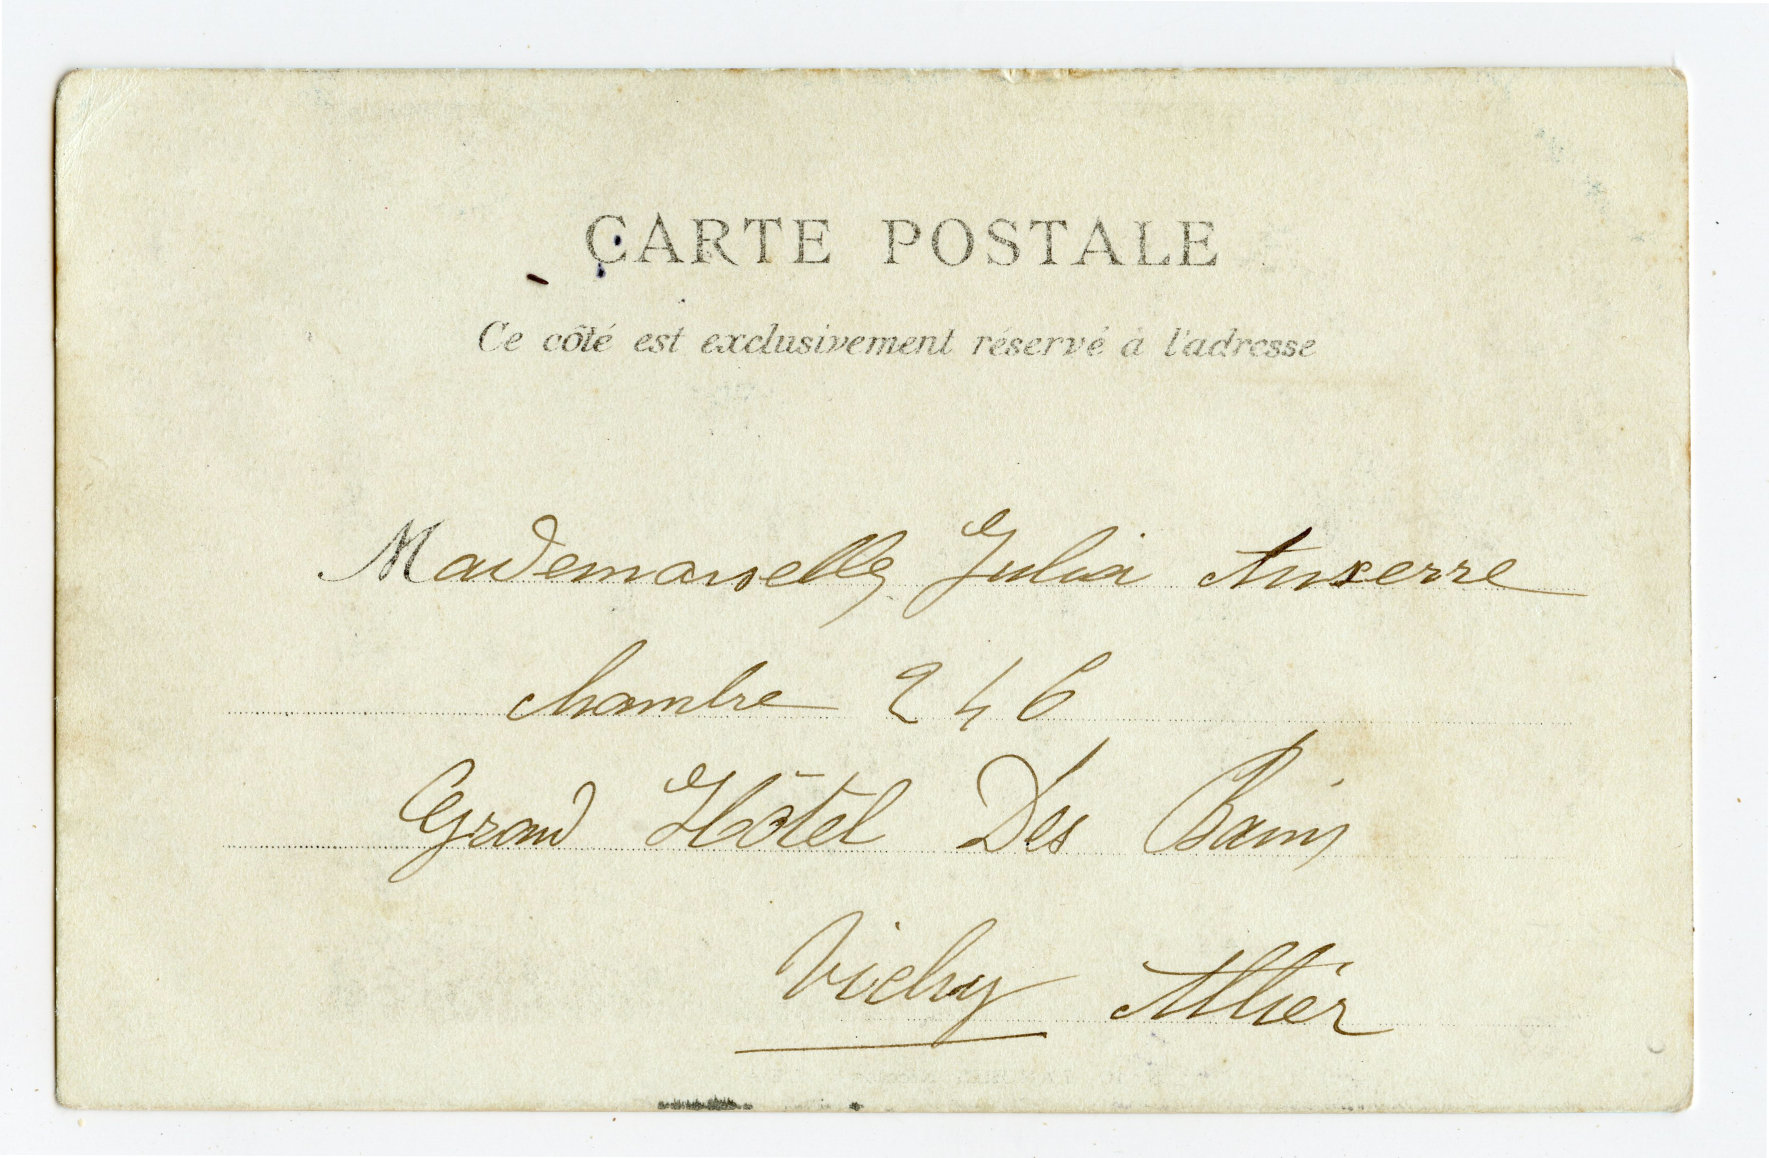 CARTE POSTALE
Ce côté est exclusivement réservé à l'adresse
Mademoiselle Julia Auxerre
chambre 246
Grand Hôtel Des Bains
Vichy Allier